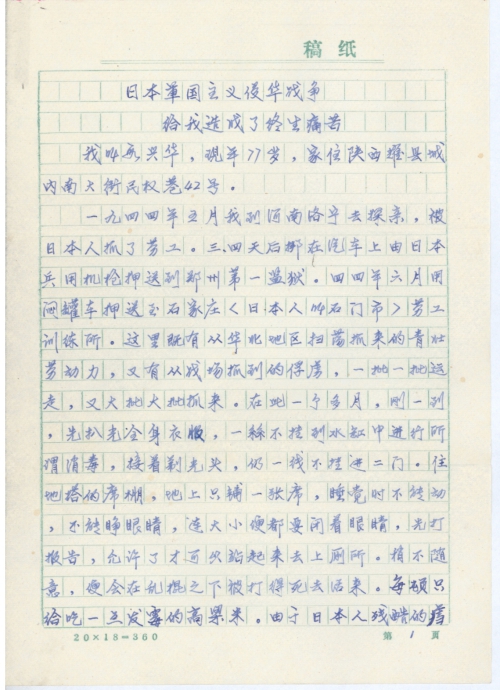 稿纸
日本军国主义侵华战争
给我造成了终生痛苦
我叫 兴华，现年77岁，家住陕西耀县城
内南大街民权巷42号。
一九四四年五月我到河南洛宁去探亲，被
日本人抓了劳工。三、四天后绑在汽车上由日本
兵用机枪押送到郑州第一监狱。四四年六月用
闷罐车押送至石家庄〈日本人叫石门市〉劳工
训练所。这里既有从华北地区扫荡抓来的青壮
劳动力，又有从战场抓到的俘虏，一批一批运
走，又大批大批抓来。在此一个多月，刚一到
，先扒光全身衣服，一丝不挂到水缸中进行所
谓消毒，接着剃光头，仍一线不挂进二门。住
地搭的席棚，地上只铺一张席，睡觉时不能动
，不能睁眼睛，连大小便都要闭着眼睛，先打
报告，允许了才可以 起来去上厕所。稍不随
意，便会在乱棍之下被打得死去活来。每顿只
给吃一点发霉的高粱米。由于日本人残酷的
20×18=360
第1页